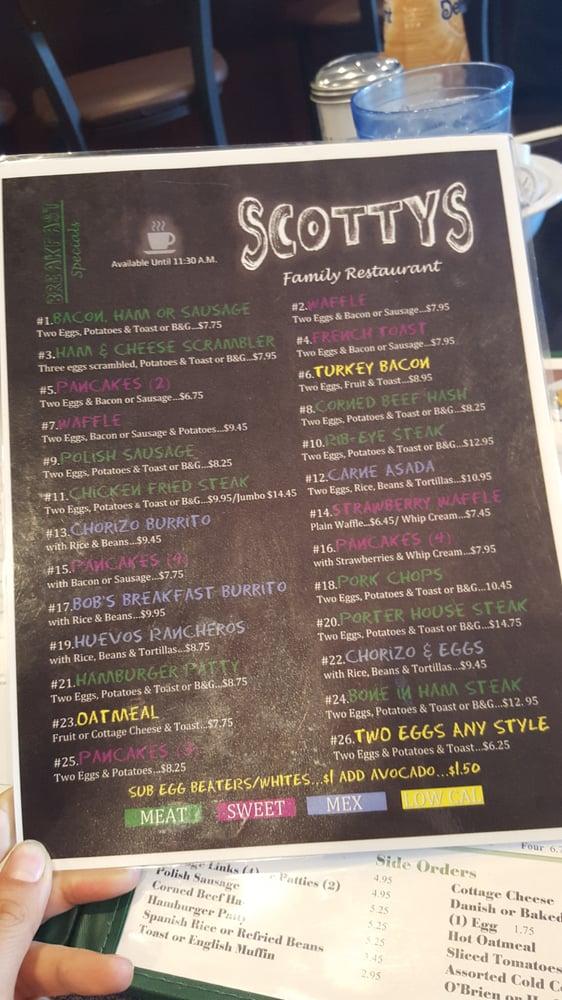 BREAKFAST
Specials
Available Until 11:30 A.M.
SCOTTYS
Family Restaurant
#1.BACON, HAM OR SAUSAGE
Two Eggs, Potatoes & Toast or B&G...$7.75
#3.HAM & CHEESE SCRAMBLER
Three eggs scrambled, Potatoes & Toast or B&G...$7.95
#5.PANCAKES (2)
Two Eggs & Bacon or Sausage...$6.75
#7.WAFFLE
Two Eggs, Bacon or Sausage & Potatoes...$9.45
#9.POLISH SAUSAGE
Two Eggs, Potatoes & Toast or B&G...$8.25
#11.CHICKEN FRIED STEAK
Two Eggs, Potatoes & Toast or B&G...$9.95/Jumbo $14.45
#13.CHORIZO BURRITO
with Rice & Beans...$9.45
#15.PANCAKES (4)
with Bacon or Sausage...$7.75
#17.BOB'S BREAKFAST BURRITO
with Rice & Beans...$9.95
#19.HUEVOS RANCHEROS
with Rice, Beans & Tortillas...$8.75
#21.HAMBURGER PATTY
Two Eggs, Potatoes & Toast or B&G...$8.75
#23.OATMEAL
Fruit or Cottage Cheese & Toast...$7.75
#25.PANCAKES
Two Eggs & Potatoes...$8.25
#2.WAFFLE
Two Eggs & Bacon or Sausage...$7.95
#4.FRENCH TOAST
Two Eggs & Bacon or Sausage...$7.95
#6.TURKEY BACON
Two Eggs, Fruit & Toast...$8.95
#8.CORNED BEEF HASH
Two Eggs, Potatoes & Toast or B&G...$8.25
#10.RIB-EYE STEAK
Two Eggs, Potatoes & Toast or B&G...$12.95
#12.CARNE ASADA
Two Eggs, Rice, Beans & Tortillas...$10.95
#14.STRAWBERRY WAFFLE
Plain Waffle...$6.45/ Whip Cream...$7.45
#16.PANCAKES (4)
with Strawberries & Whip Cream...$7.95
#18.PORK CHOPS
Two Eggs, Potatoes & Toast or B&G...10.45
#20.PORTER HOUSE STEAK
Two Eggs, Potatoes & Toast or B&G...$14.75
#22.CHORIZO & EGGS
with Rice, Beans & Tortillas...$9.45
#24.BONE IN HAM STEAK
Two Eggs, Potatoes & Toast or B&G...$12.95
#26.TWO EGGS ANY STYLE
Two Eggs & Potatoes & Toast...$6.25
SUB EGG BEATERS/WHITES...$1 ADD AVOCADO...$1.50
MEAT SWEET MEX LOW CAL
Four
Side Orders
Links (4) Patties (2) 4.95
Polish Sausage 4.95
Corned Beef 5.25
Hamburger 5.25
Spanish Rice or Refried Beans 5.25
Toast or English Muffin 3.45
2.95
Cottage Cheese
Danish or Baked
(1) Egg 1.75
Hot Oatmeal
Sliced Tomatoes
Assorted Cold
O'Brien